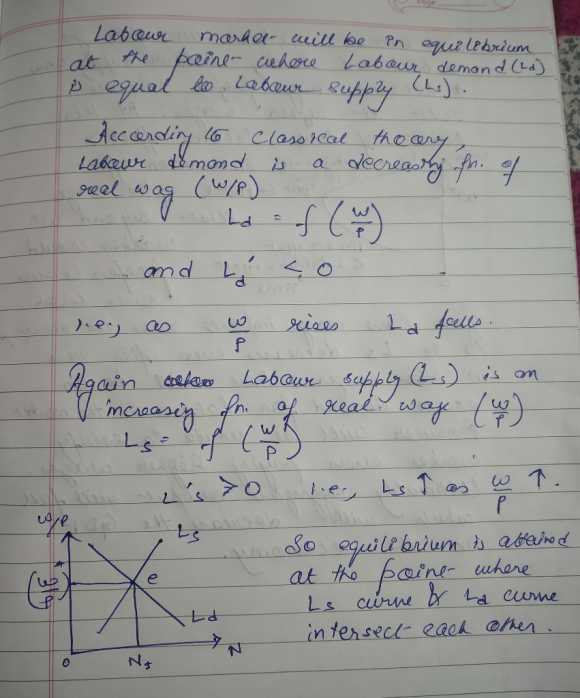 Labour market will be in equilibrium
at the point where Labour demand (Ld)
is equal to Labour supply (Ls).
According to Classical theory,
Labour demand is a decreasing fn. of
real wag (W/P)
Ld = f (W/P)
and Ld' < 0
i.e., as W/P rises Ld falls.
Again Labour supply (Ls) is an
increasing fn. of real wage (W/P)
Ls = f (W/P)
L's > 0 i.e., Ls ↑ as W/P ↑.
W/P
Ls
(W/P)*
e
Ld
0
Nf
N
So equilibrium is attained
at the point where
Ls curve & Ld curve
intersect each other.